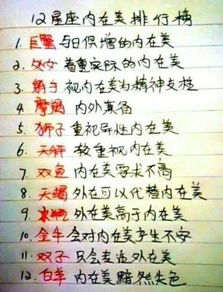 12星座内在美排行榜
1. 巨蟹 与日俱增的内在美
2. 处女 着重实际的内在美
3. 射手 视内在美为精神支柱
4. 摩羯 内外兼备
5. 狮子 重视异性内在美
6. 天秤 较重视内在美
7. 双鱼 内在美要求不高
8. 天蝎 外在可以代替内在美
9. 水瓶 外在美高于内在美
10. 金牛 会对内在美产生不安
11. 双子 只会表达外在美
12. 白羊 内在美黯然失色